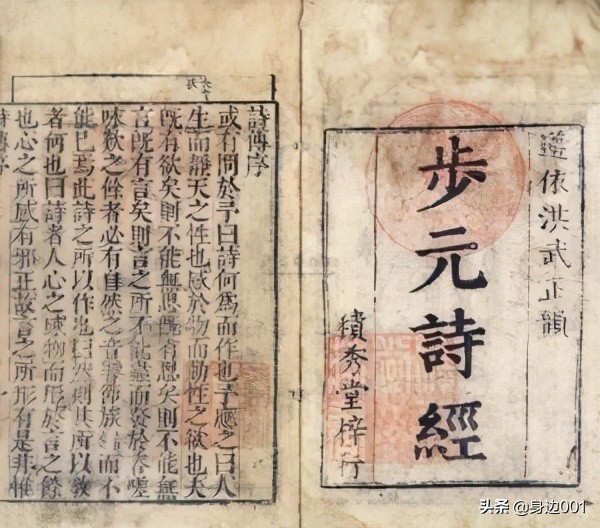 遵依洪武正韻
步元詩經
積秀堂梓行
詩傳序
或有問於予曰詩何爲而作也予應之曰人
生而靜天之性也感於物而動性之欲也夫
既有欲矣則不能無思既有思矣則不能無
言既有言矣則言之所不能盡而發於咨嗟
咏歎之餘者必有自然之音響節族而不
能已焉此詩之所以作也曰然則其所以教
者何也曰詩者人心之感物而形於言之餘
也心之所感有邪正故言之所形有是非惟
詩傳序
头条 @身边001